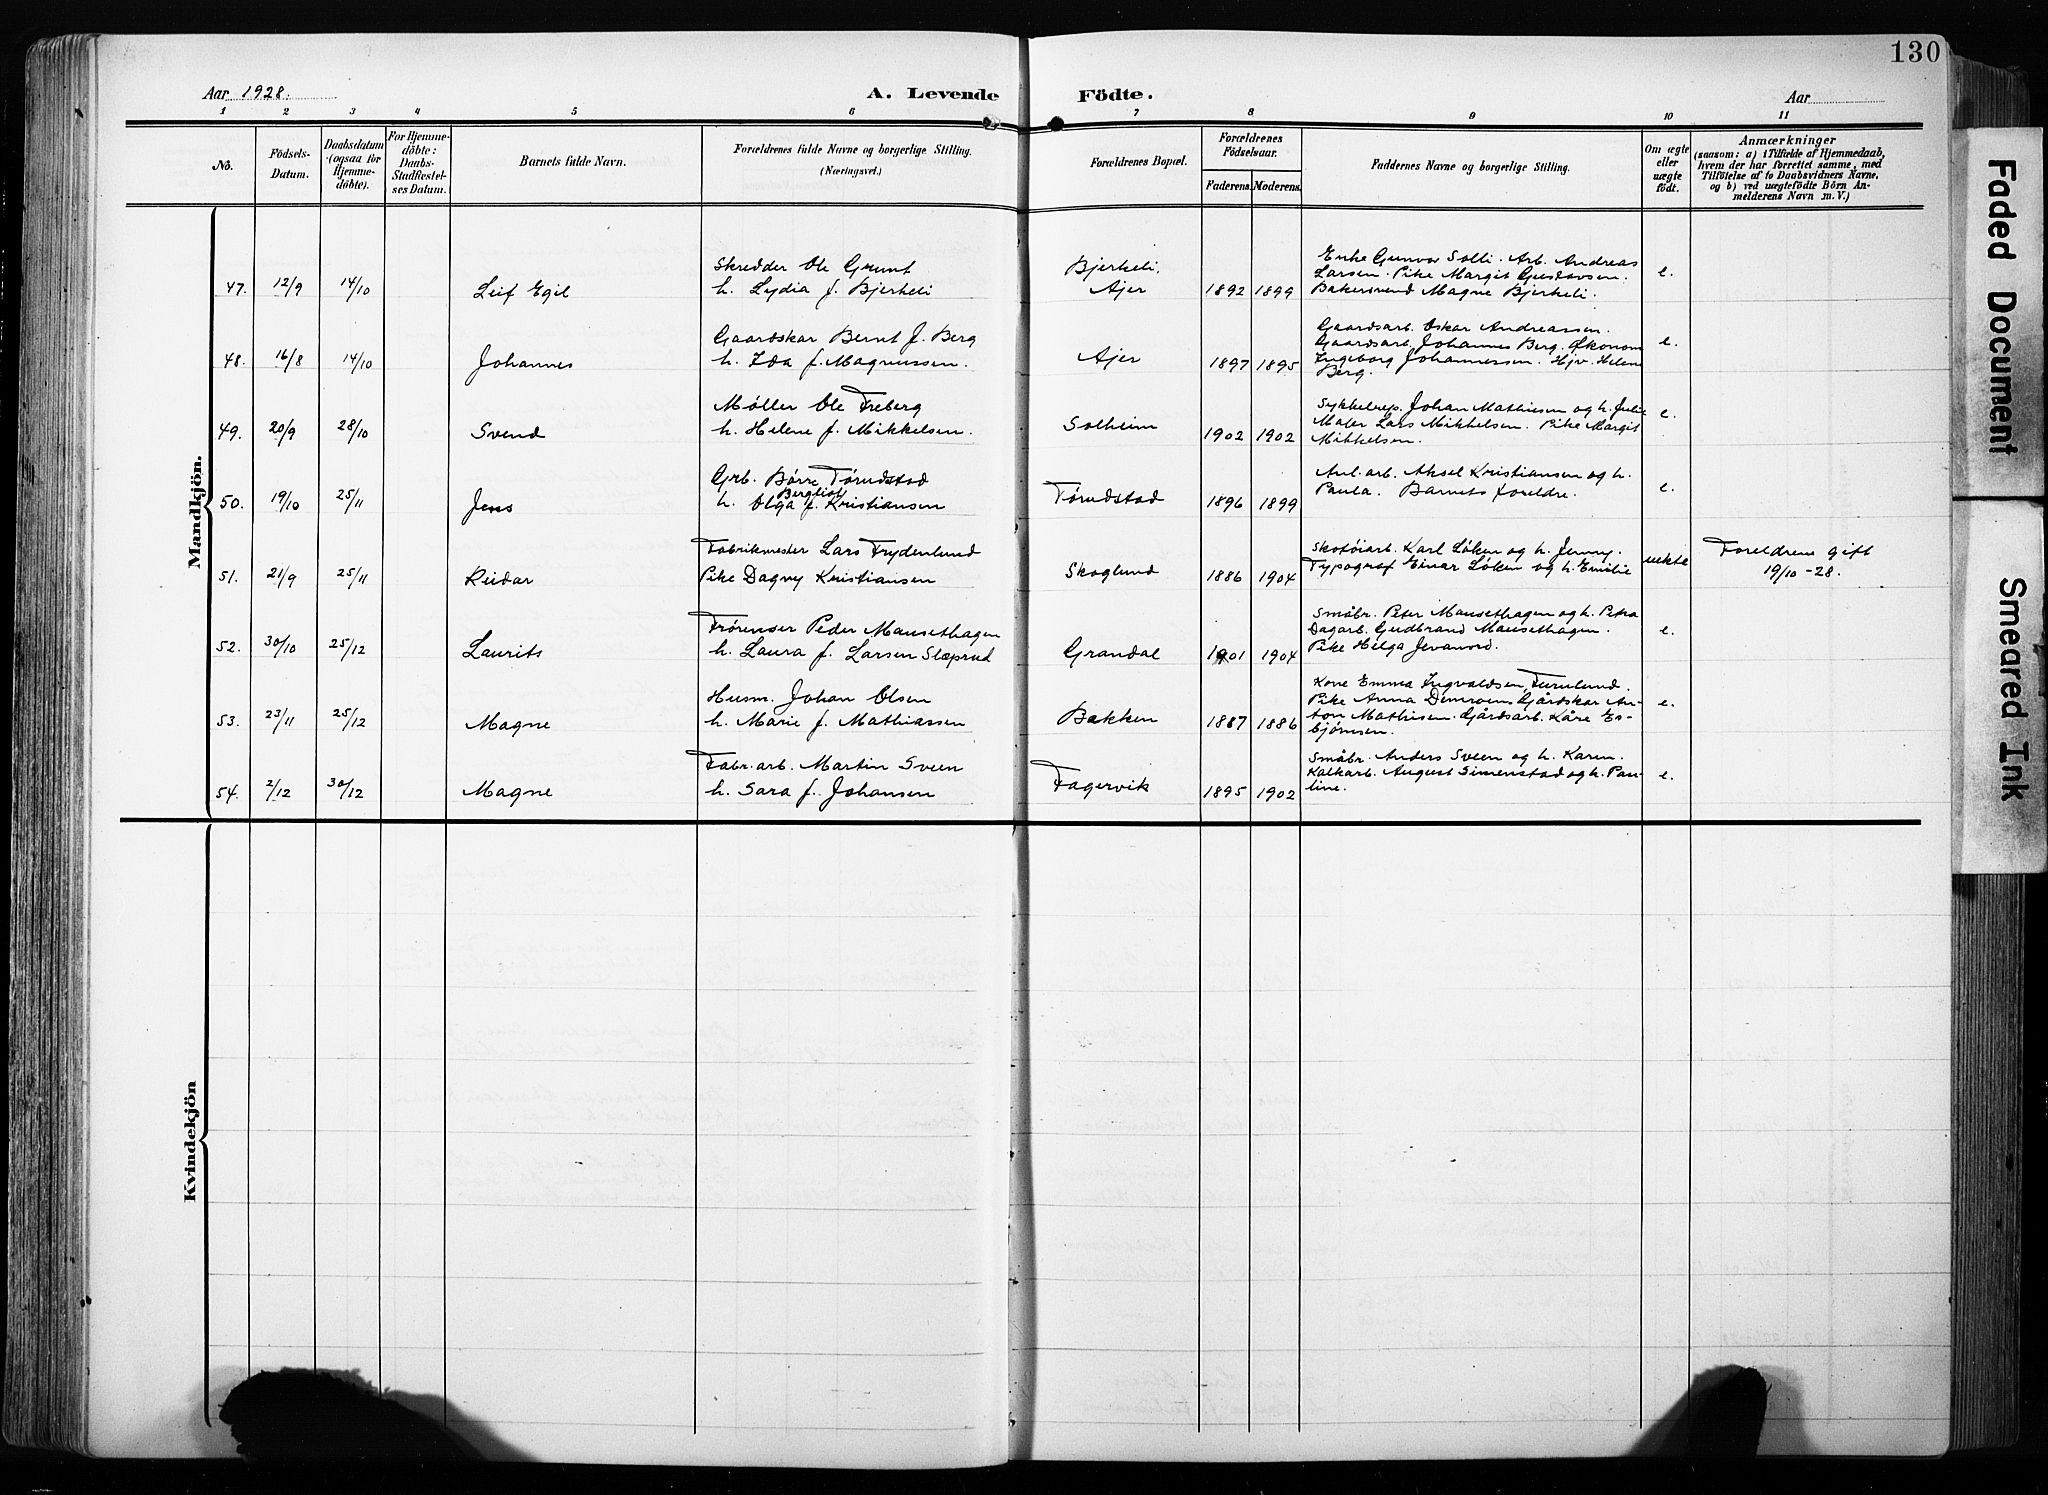 130
Aar 1928.
A. Levende Födte.
Aar
1 2 3 4 5 6 7 8 9 10 11
No.
Födsels-
Datum.
Daabsdatum
(ogsaa for
Hjemme-
döbte).
For Hjemme-
döbte:
Daabs-
Stadfæstel-
ses Datum.
Barnets fulde Navn.
Forældrenes fulde Navne og borgerlige Stilling.
(Næringsvei.)
Forældrenes Bopæl.
Forældrenes
Födselsaar.
Faderens. Moderens.
Faddernes Navne og borgerlige Stilling.
Om ægte
eller
uægte
født.
Anmærkninger
(saasom: a) i Tilfælde af Hjemmedaab,
hvem der har forrettet samme, med
Tilföielse af to Daabsvidners Navne,
og b) ved uægtefödte Börn An-
melderens Navn m. V.)
Mandkjön.
47. 12/9 14/10 Leif Egil
Skredder Ole Grunt
h. Lydia f. Bjerkeli
Bjerkeli,
Ajer
1892 1899
Enke Gunvor Solli. Arb. Andreas
Larsen. Pike Margit Gustavsen.
Bakersvend Magne Bjerkeli.
e.
48. 16/8 14/10 Johannes
Gaardskar Bernt J. Berg
h. Ida f. Magnussen.
Ajer
1897 1895
Gaardsarb. Oskar Andreassen.
Gaardsarb. Johannes Berg. Økonom
Ingeborg Johannessen. Hjv. Helene
Berg.
e.
49. 20/9 28/10 Svend
Møller Ole Freberg
h. Helene f. Mikkelsen.
Solheim
1902 1902
Sykkelrep. Johan Mathiesen og h. Julie
Maler Lars Mikkelsen. Pike Margit
Mikkelsen.
e.
50. 19/10 25/11 Jens
Grb. Børre Tørudstad
Bergliot
h. Olga f. Kristiansen
Tørudstad
1896 1899
Anl. arb. Aksel Kristiansen og h.
Paula. Barnets foreldre.
e.
51. 21/9 25/11 Reidar
Fabrikmester Lars Frydenlund
Pike Dagny Kristiansen
Skoglund
1886 1904
Skotøiarb. Karl Løken og h. Jenny.
Typograf Einar Løken og h. Emilie
uekte
Foreldrene gift
19/10 - 28.
52. 30/10 25/12 Laurits
Frørenser Peder Mausethagen
h. Laura f. Larsen Slæprud
Grandal
1901 1904
Småbr. Peter Mausethagen og h. Petra
Dagarb. Gudbrand Mausethagen.
Pike Helga Jevanord.
e.
53. 23/11 25/12 Magne
Husm. Johan Olsen
h. Marie f. Mathiassen
Bakken
1887 1886
Kone Emma Ingvaldsen, Furulund.
Pike Anna Gårdskar An-
ton Mathisen. Gårdsarb. Kåre Es-
bjørnsen.
e.
54. 2/12 30/12 Magne
Fabr. arb. Martin Sveen
h. Sara f. Johansen
Fagervik
1895 1902
Småbr. Anders Sveen og h. Karen.
Kalkarb. August Simenstad og h. Pau-
line.
e.
Kvindekjön
Faded Document
Smeared Ink